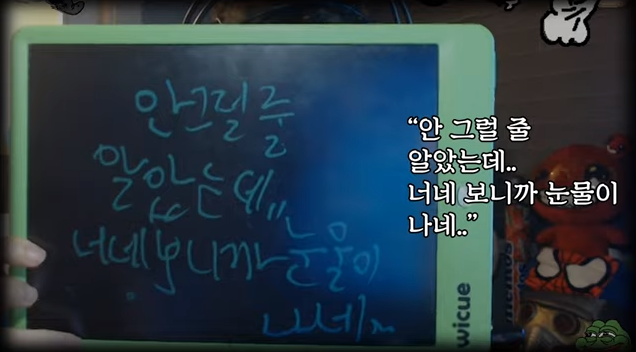 안그럴줄
알았는데,,
너네보니까 눈물이
나네~
“안 그럴 줄
알았는데..
너네 보니까 눈물이
나네..”
wicue